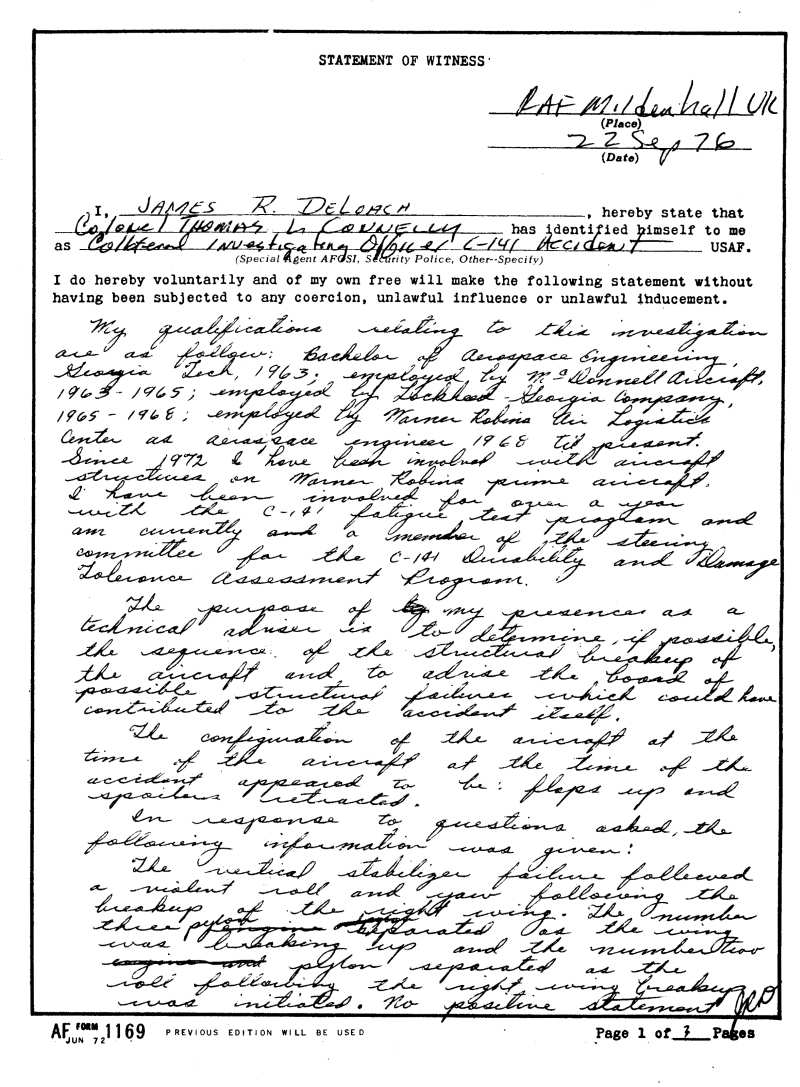 STATEMENT OF WITNESS
RAF Mildenhall UK
(Place)
22 Sep 76
(Date)
I, JAMES R. DELOACH, hereby state that
Colonel THOMAS L. CONNELLY has identified himself to me
as Collateral Investigating Officer C-141 Accident USAF.
(Special Agent AFOSI, Security Police, Other--Specify)
I do hereby voluntarily and of my own free will make the following statement without
having been subjected to any coercion, unlawful influence or unlawful inducement.
My qualifications relating to this investigation
are as follow: Bachelor of Aerospace Engineering,
Georgia Tech, 1963; employed by McDonnell Aircraft,
1963-1965; employed by Lockheed-Georgia Company,
1965-1968; employed by Warner Robins Air Logistics
Center as aerospace engineer 1968 til present.
Since 1972 I have been involved with aircraft
structures on Warner Robins prime aircraft.
I have been involved for over a year
with the C-141 fatigue test program and
am currently and a member of the steering
committee for the C-141 Durability and Damage
Tolerance Assessment Program.
The purpose of by my presence as a
technical adviser is to determine, if possible,
the sequence of the structural breakup of
the aircraft and to advise the board of
possible structural failures which could have
contributed to the accident itself.
The configuration of the aricraft at the
time of the aircraft at the time of the
accident appeared to be: flaps up and
spoilers retracted.
In response to questions asked, the
following information was given:
The vertical stabilizer failure followed
a violent roll and yaw following the
breakup of the right wing. The number
three pylon separated as the wing
was breaking up and the number two
engine and pylon separated as the
roll following the right wing breakup
was initiated. No positive statement JRD
AF FORM 1169
JUN 72
PREVIOUS EDITION WILL BE USED
Page 1 of 3 Pages